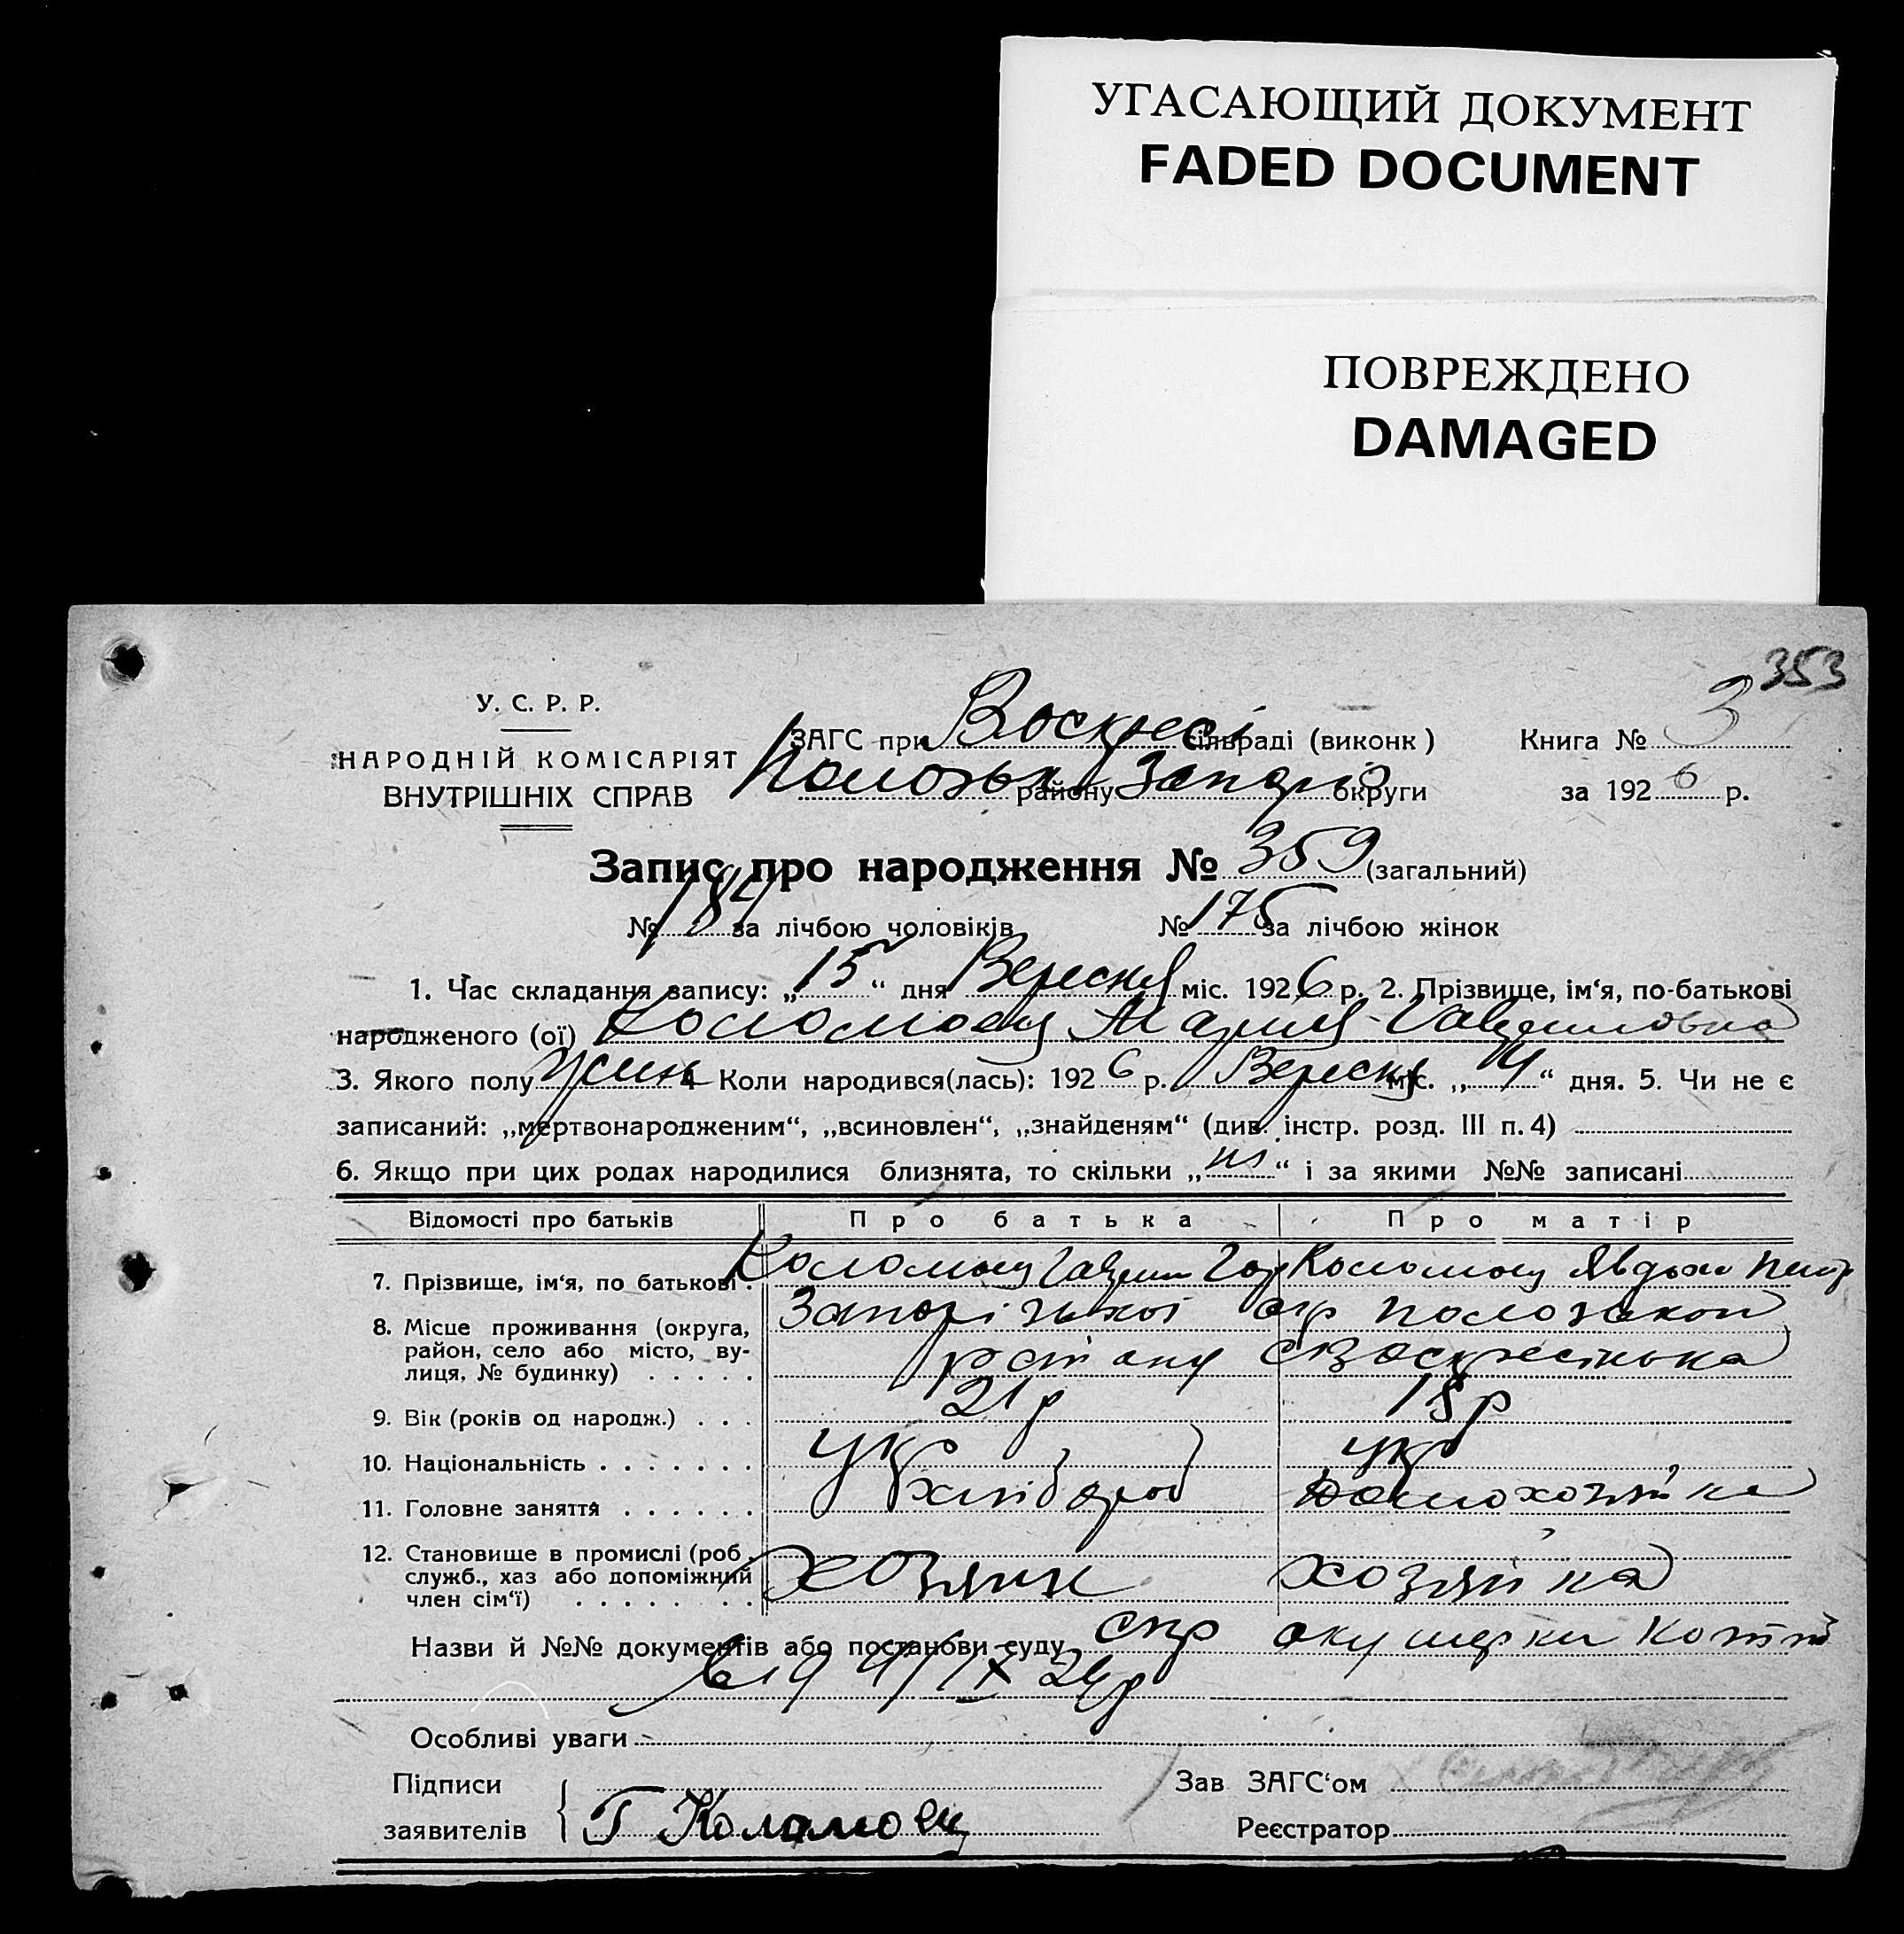 УГАСАЮЩИЙ ДОКУМЕНТ
FADED DOCUMENT
ПОВРЕЖДЕНО
DAMAGED
353
У. С. Р. Р.
НАРОДНІЙ КОМІСАРІЯТ
ВНУТРІШНІХ СПРАВ
ЗАГС при Воскресі сільраді (виконк) Книга № 3
району Запорі округи за 1926 р.
Запис про народження № 359 (загальний)
№ 184 за лічбою чоловіків № 175 за лічбою жінок
1. Час складання запису: „15“ дня Вересня міс. 1926 р. 2. Прізвище, ім‘я, по-батькові
народженого (ої) Коломоєц Мария Гаврииловна
3. Якого полу Жин 4 Коли народився(лась): 1926 р. Вересня міс. „14“ дня. 5. Чи не є
записаний: „мертвонародженим“, „всиновлен“, „знайденям“ (див. інстр. розд. III п. 4)
6. Якщо при цих родах народилися близнята, то скільки „ні“ і за якими №№ записані
Відомості про батьків Про батька Про матір
7. Прізвище, ім‘я, по батькові. Коломоєц Гаврил Коломоєц Явдоха Петр
8. Місце проживання (округа, Запорізької окр Пологзької
район, село або місто, ву- району с Воскресінька
лиця, № будинку)
9. Вік (років од народж.) 21 р 18 р
10. Національність укр укр
11. Головне заняття хлібороб домохозяйка
12. Становище в промислі (роб.
служб., хаз або допоміжний хозяин хозяйка
член сім‘ї)
Назви й №№ документів або постанови суду спр акушерки
Особливі уваги
Підписи Зав ЗАГС‘ом
заявителів Г Коломоєц Реєстратор